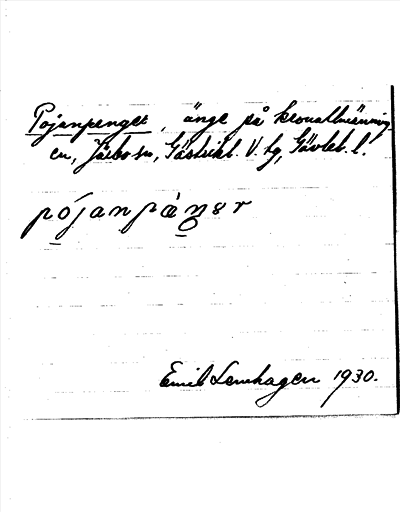 Pojanpenget, änge på kronoallmänning
en, Järbo sn, Gästrikl. V. tg, Gävleb. l.
pójanpàŋər
Emil Lenhagen 1930.